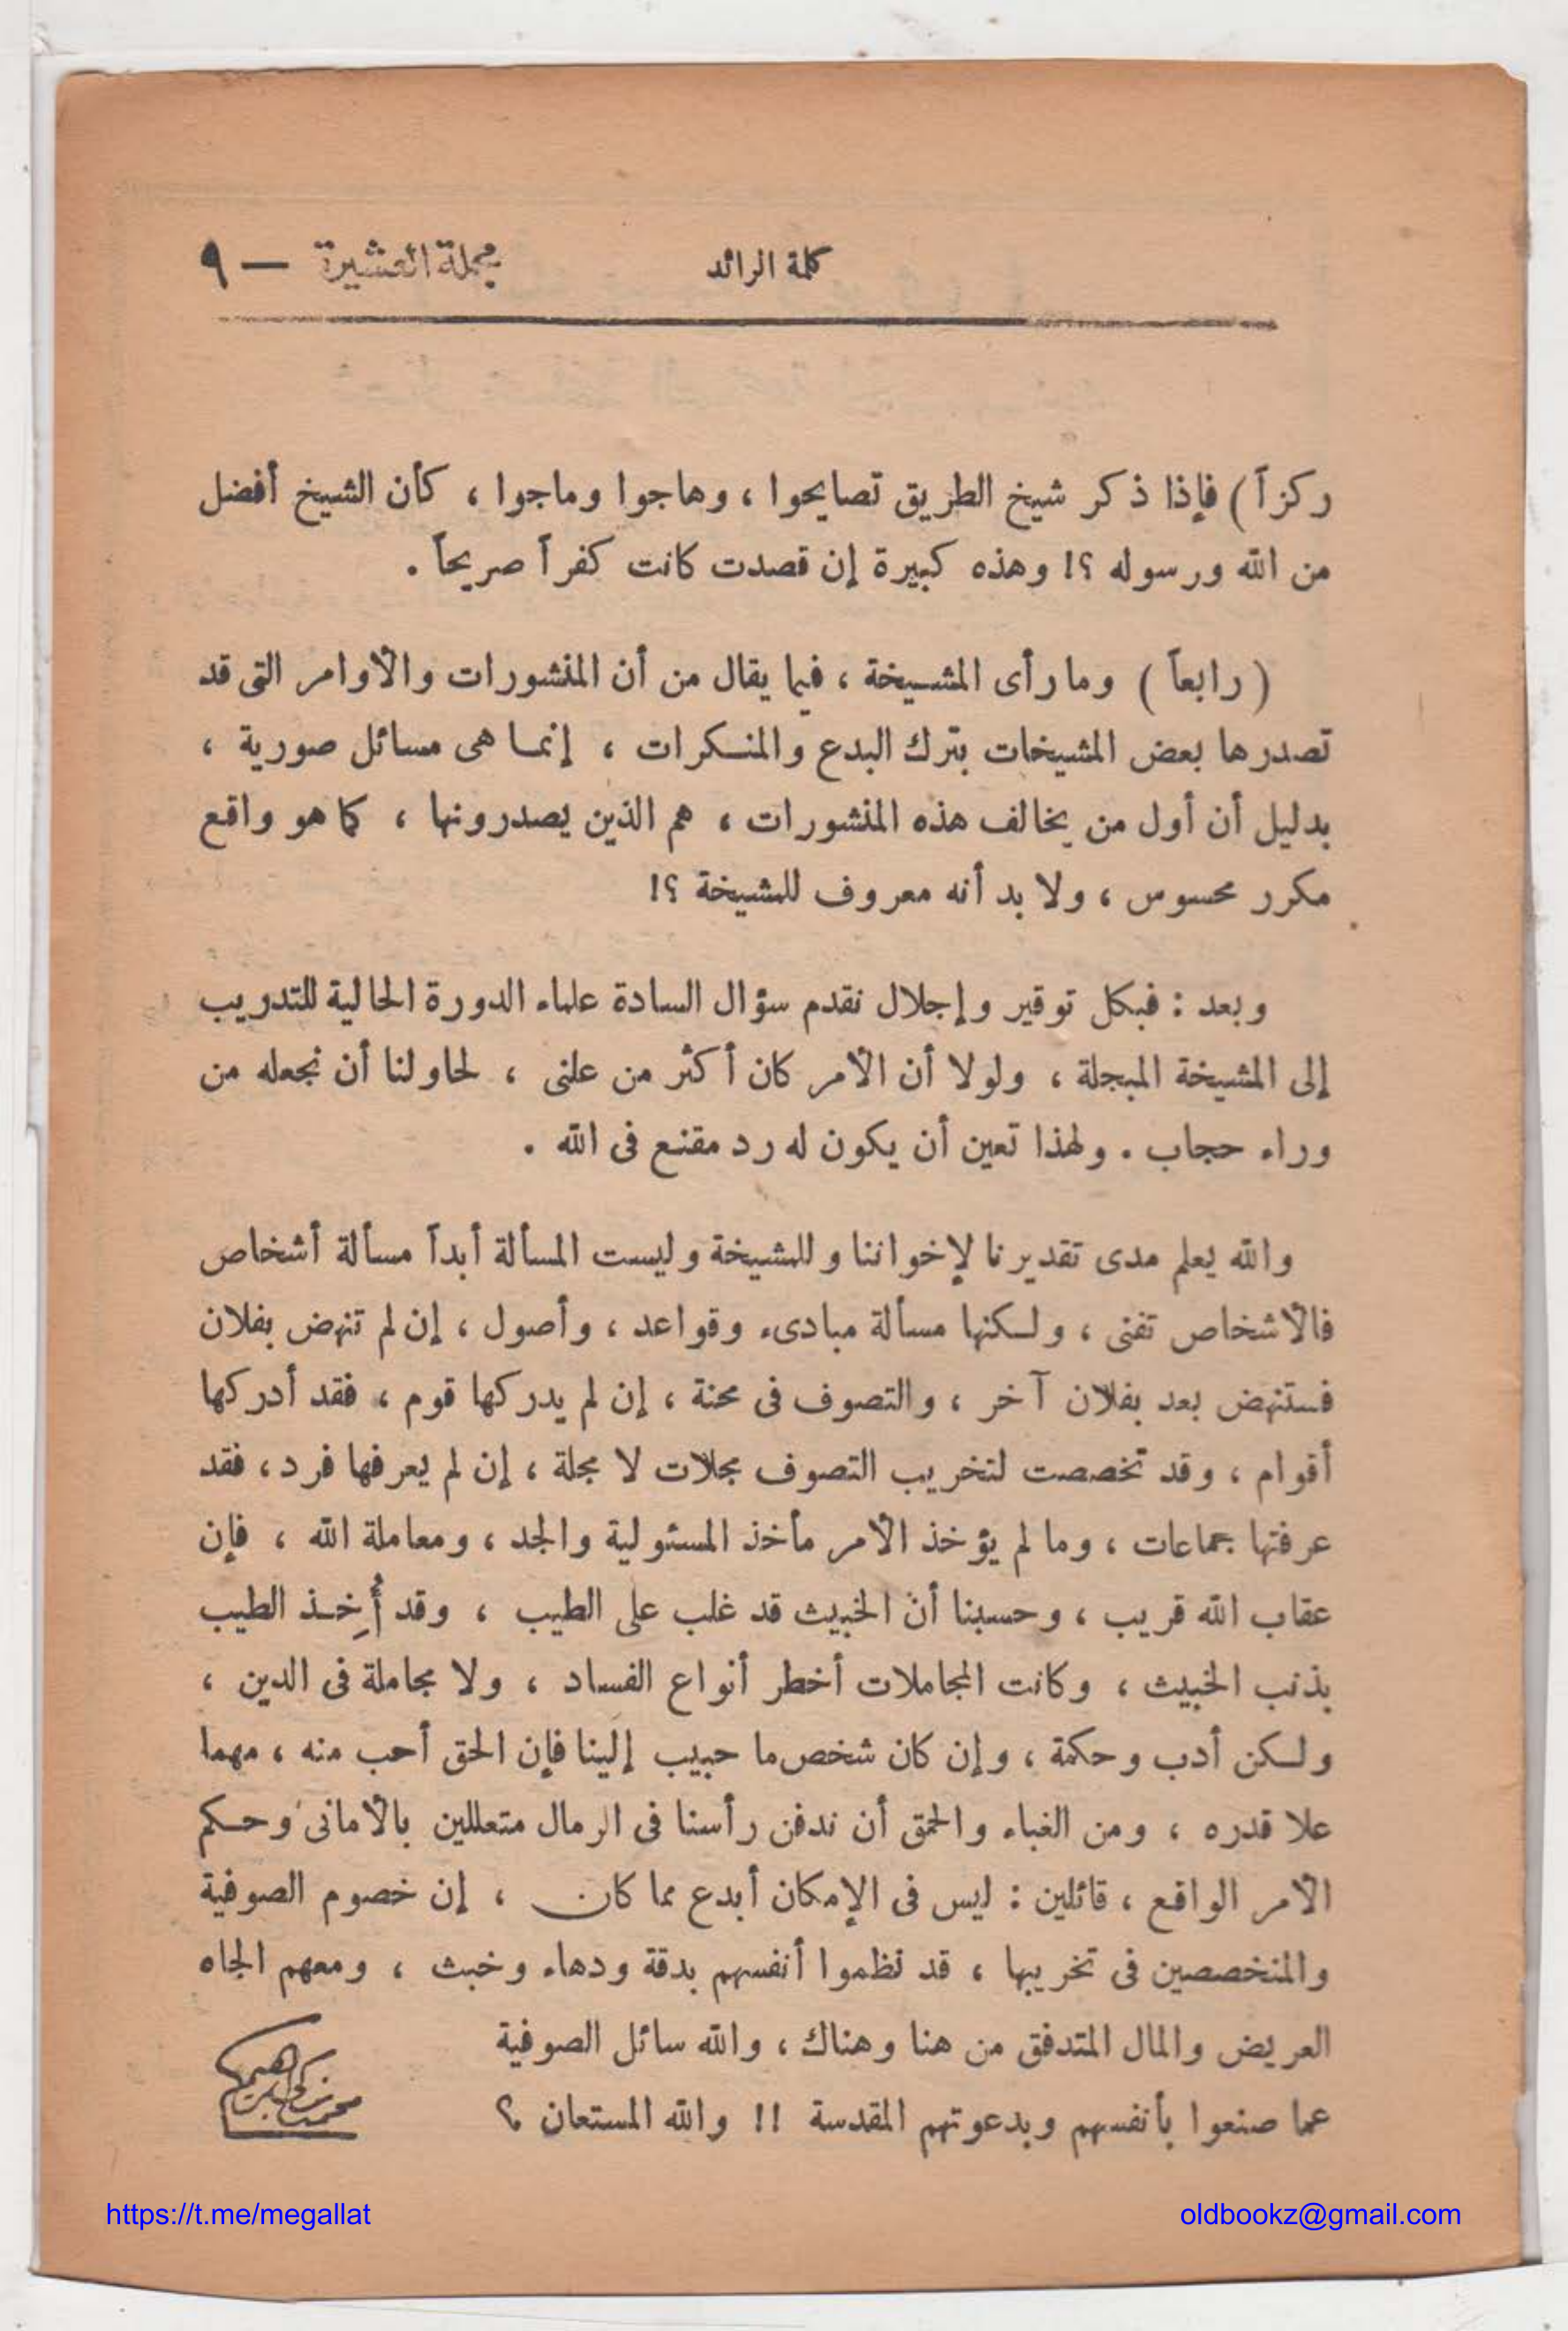 كلمة الرائد
مجلة العشيرة — ٩
ركزاً ) فإذا ذكر شيخ الطريق تصايحوا ، وهاجوا وماجوا ، كأن الشيخ أفضل
من الله ورسوله ؟! وهذه كبيرة إن قصدت كانت كفراً صريحاً .
( رابعاً ) وما رأى المشيخة ، فيما يقال من أن المنشورات والأوامر التى قد
تصدرها بعض المشيخات بترك البدع والمنكرات ، إنما هى مسائل صورية ،
بدليل أن أول من يخالف هذه المنشورات ، هم الذين يصدرونها ، كما هو واقع
مكرر محسوس ، ولا بد أنه معروف للمشيخة ؟!
وبعد : فبكل توقير وإجلال نقدم سؤال السادة علماء الدورة الحالية للتدريب
إلى المشيخة المبجلة ، ولولا أن الأمر كان أكثر من علنى ، لحاولنا أن نجعله من
وراء حجاب . ولهذا تعين أن يكون له رد مقنع فى الله .
والله يعلم مدى تقديرنا لإخواننا وللمشيخة وليست المسألة أبداً مسألة أشخاص
فالأشخاص تفنى ، ولكنها مسألة مبادىء وقواعد ، وأصول ، إن لم تنهض بفلان
فستنهض بعد بفلان آخر ، والتصوف فى محنة ، إن لم يدركها قوم ، فقد أدركها
أقوام ، وقد تخصصت لتخريب التصوف مجلات لا مجلة ، إن لم يعرفها فرد ، فقد
عرفتها جماعات ، وما لم يؤخذ الأمر مأخذ المسئولية والجد ، ومعاملة الله ، فإن
عقاب الله قريب ، وحسبنا أن الخبيث قد غلب على الطيب ، وقد أُخِذ الطيب
بذنب الخبيث ، وكانت المجاملات أخطر أنواع الفساد ، ولا مجاملة فى الدين ،
ولكن أدب وحكمة ، وإن كان شخص ما حبيب إلينا فإن الحق أحب منه ، مهما
علا قدره ، ومن الغباء والحمق أن ندفن رأسنا فى الرمال متعللين بالأمانى وحكم
الأمر الواقع ، قائلين : ليس فى الإمكان أبدع مما كان ، إن خصوم الصوفية
والمتخصصين فى تخريبها ، قد نظموا أنفسهم بدقة ودهاء وخبث ، ومعهم الجاه
العريض والمال المتدفق من هنا وهناك ، والله سائل الصوفية
عما صنعوا بأنفسهم وبدعوتهم المقدسة !! والله المستعان ؟
محمد زكى إبراهيم
https://t.me/megallat
oldbookz@gmail.com